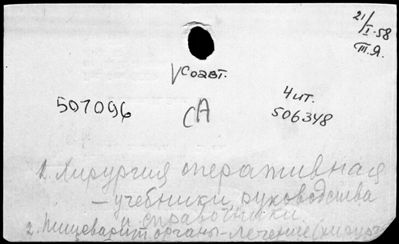 21/I-58
Т.Я.
Vсоавт.
507096
сА
4 ит.
506348
1. Хирургия оперативная
– учебники, руководства
и справочники.
2. Пищеварит. органы – лечение (хирург